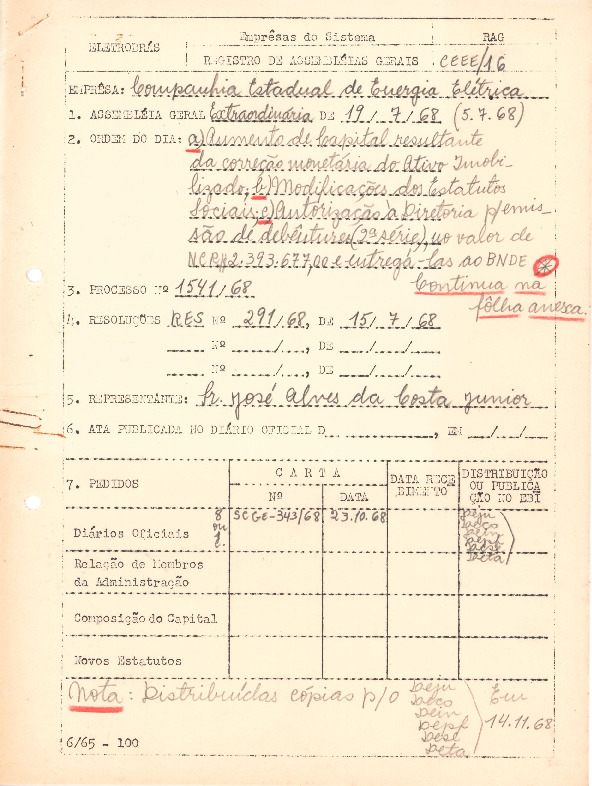 ELETROBRÁS
Emprêsas do Sistema
RAG
REGISTRO DE ASSEMBLÉIAS GERAIS
CEEE/16
EMPRÊSA: Companhia Estadual de Energia Elétrica
1. ASSEMBLÉIA GERAL Extraordinária DE 19 / 7 / 68 (5.7.68)
2. ORDEM DO DIA: a) Aumento de Capital resultante
da correção monetária do Ativo Imobi-
lizado; b) Modificações dos Estatutos
Sociais; c) Autorização à Diretoria p/ emis-
são de debêntures (2ª série), no valor de
NCR$ 2.393.677,00 e entregá-las ao BNDE
Continua na
fôlha anexa.
3. PROCESSO Nº 1541/68
4. RESOLUÇÕES RES Nº 291/68, DE 15/ 7 /68
Nº /..., DE / /
Nº /..., DE / /
5. REPRESENTANTE: Sr. José Alves da Costa Junior
6. ATA PUBLICADA NO DIÁRIO OFICIAL D , EM / /
7. PEDIDOS
CARTA
Nº
DATA
DATA RECE
BIMENTO
DISTRIBUIÇÃO
OU PUBLICA
ÇÃO NO EBI
Diários Oficiais
8
ou
1
SCGE-343/68
23.10.68
Deju
Deco
Dein
Depf
Dese
Deta
Relação de Membros
da Administração
Composição do Capital
Novos Estatutos
Nota: Distribuídas cópias p/o
Deju
Deco
Dein
Depf
Dese
Deta
Em
14.11.68
6/65 - 100